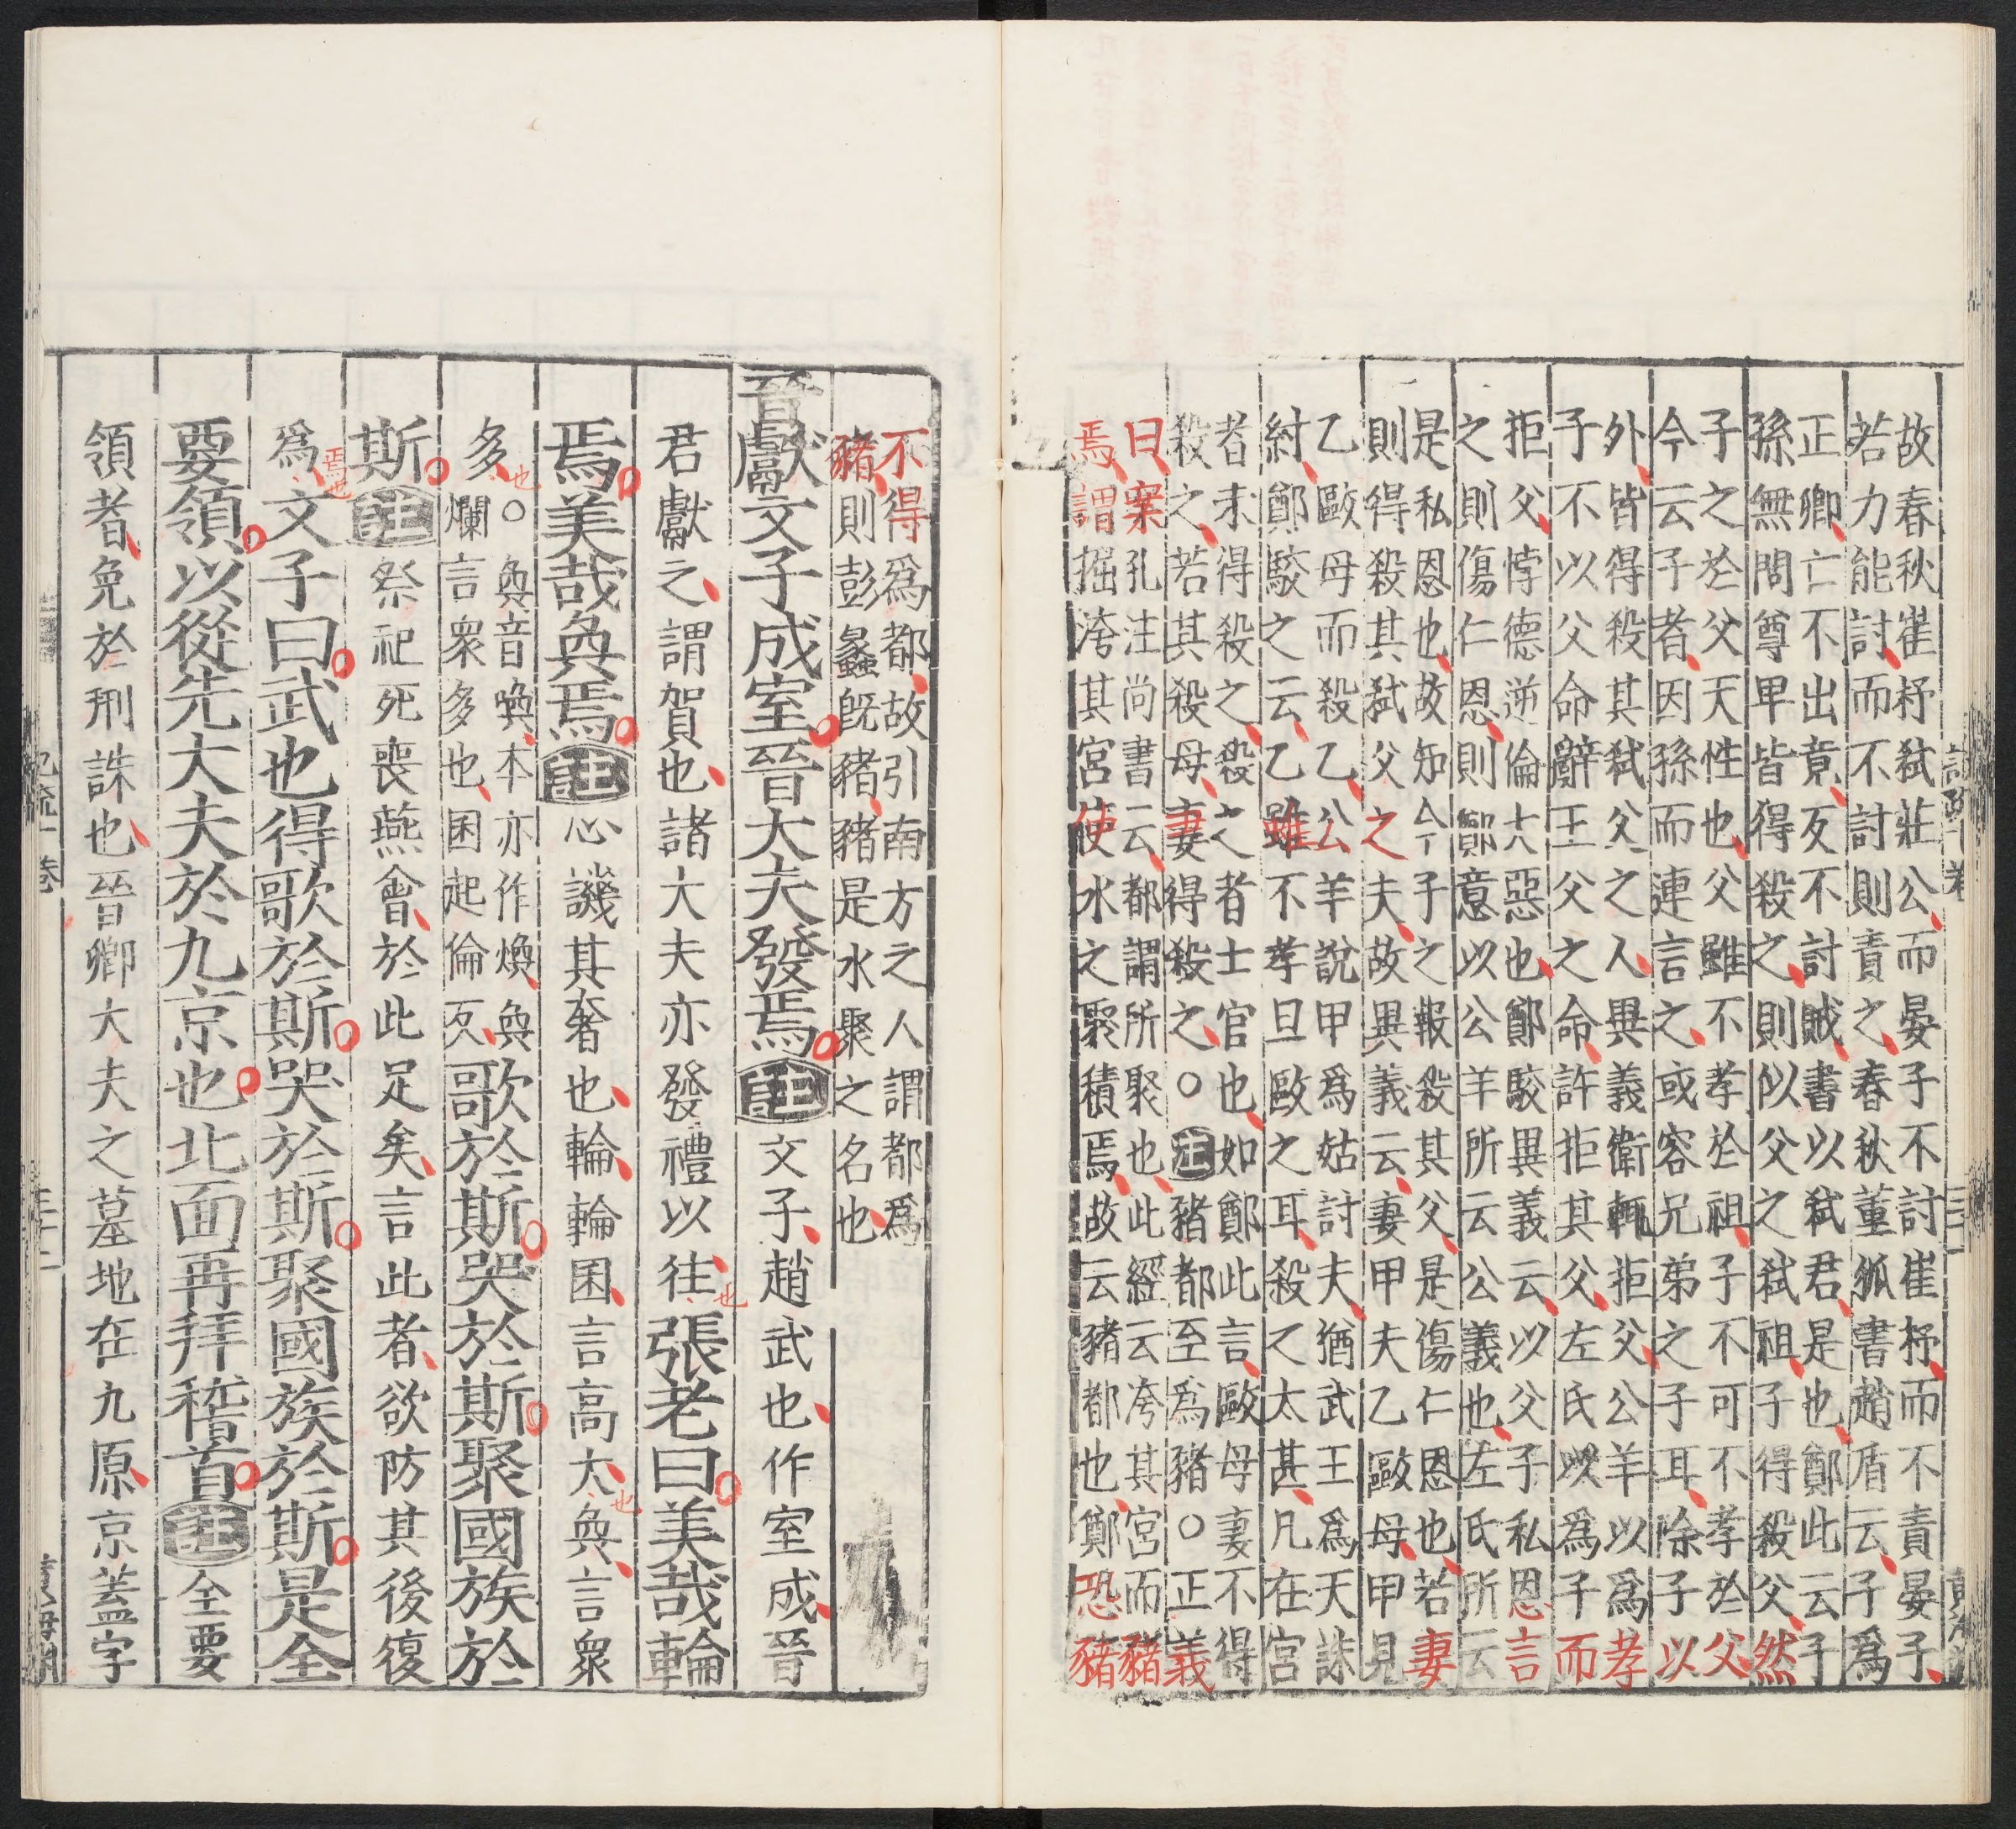 故春秋崔杼弒莊公而晏子不討崔杼而不責晏子
若力能討而不討則責之春秋董狐書趙盾云子爲
正卿亡不出竟反不討賊書以弒君是也鄭此云子
孫無問尊卑皆得殺之則似父之弒祖子得殺父然
子之於父天性也父雖不孝於祖子不可不孝於父
今云子者因孫而連言之或容兄弟之子耳除子以
外皆得殺其弒父之人異義衛輒拒父公羊以爲孝
子不以父命辭王父之命許拒其父左氏以爲子而
拒父悖德逆倫大惡也鄭駮異義云以父子私恩言
之則傷仁恩則鄭意以公羊所云公義也左氏所云
是私恩也故知今子之報殺其父是傷仁恩也若妻
則得殺其弒父之夫故異義云妻甲夫乙毆母甲見
乙毆母而殺乙公羊說甲爲姑討夫猶武王爲天誅
紂鄭駮之云乙雖不孝且毆之耳殺之太甚凡在宮
者未得殺之殺之者士官也如鄭此言毆母妻不得
殺之若其殺母妻得殺之○注豬都至爲豬○正義
曰案孔注尚書云都謂所聚也此經云洿其宮而豬
焉謂掘洿其宮使水之聚積焉故云豬都也鄭恐豬
不得爲都故引南方之人謂都爲
豬則彭蠡旣豬豬是水聚之名也
晉獻文子成室晉大夫發焉注文子趙武也作室成晉
君獻之謂賀也諸大夫亦發禮以往也張老曰美哉輪
焉美哉奐焉注心譏其奢也輪輪囷言高大也奐言衆
多也○奐音喚本亦作煥奐
爛言衆多也囷起倫反歌於斯哭於斯聚國族於
斯注祭祀死喪燕會於此足矣言此者欲防其後復
爲焉也文子曰武也得歌於斯哭於斯聚國族於斯是全
要領以從先大夫於九京也北面再拜稽首注全要
領者免於刑誅也晉卿大夫之墓地在九原京蓋字